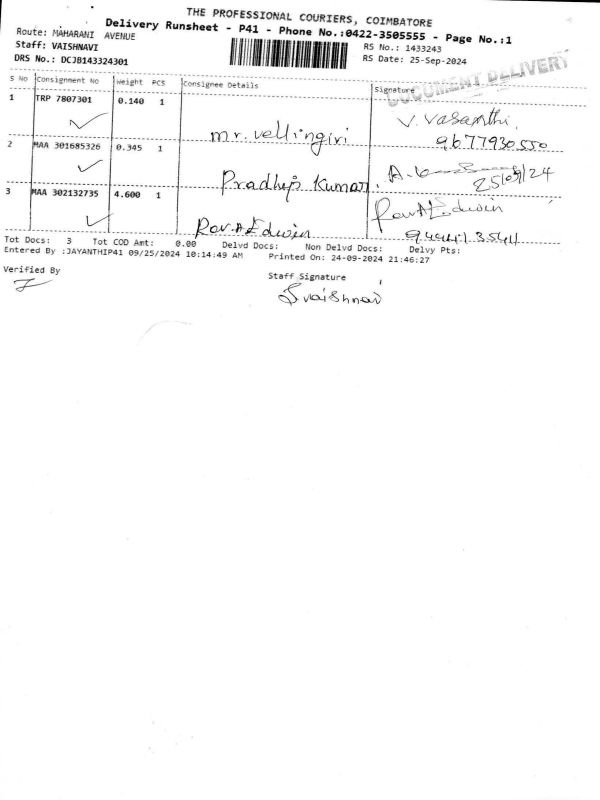 THE PROFESSIONAL COURIERS, COIMBATORE
Delivery Runsheet - P41 - Phone No.:0422-3505555 - Page No.:1
Route: MAHARANI AVENUE
RS No.: 1433243
Staff: VAISHNAVI
RS Date: 25-Sep-2024
DRS No.: DCJB143324301
DOCUMENT DELIVERY
S No Consignment No Weight PCS Consignee Details Signature
1 TRP 7807301 0.140 1
mr. vellingiri
V. Vasanthi
9677930550
2 MAA 301685326 0.345 1
Pradhip Kumar
25/09/24
3 MAA 302132735 4.600 1
Rev. A Edwin
Rev A Edwin
Tot Docs: 3 Tot COD Amt: 0.00 Delvd Docs: Non Delvd Docs: Delvy Pts:
Entered By :JAYANTHIP41 09/25/2024 10:14:49 AM Printed On: 24-09-2024 21:46:27
Verified By
Staff Signature
S.vaishnavi